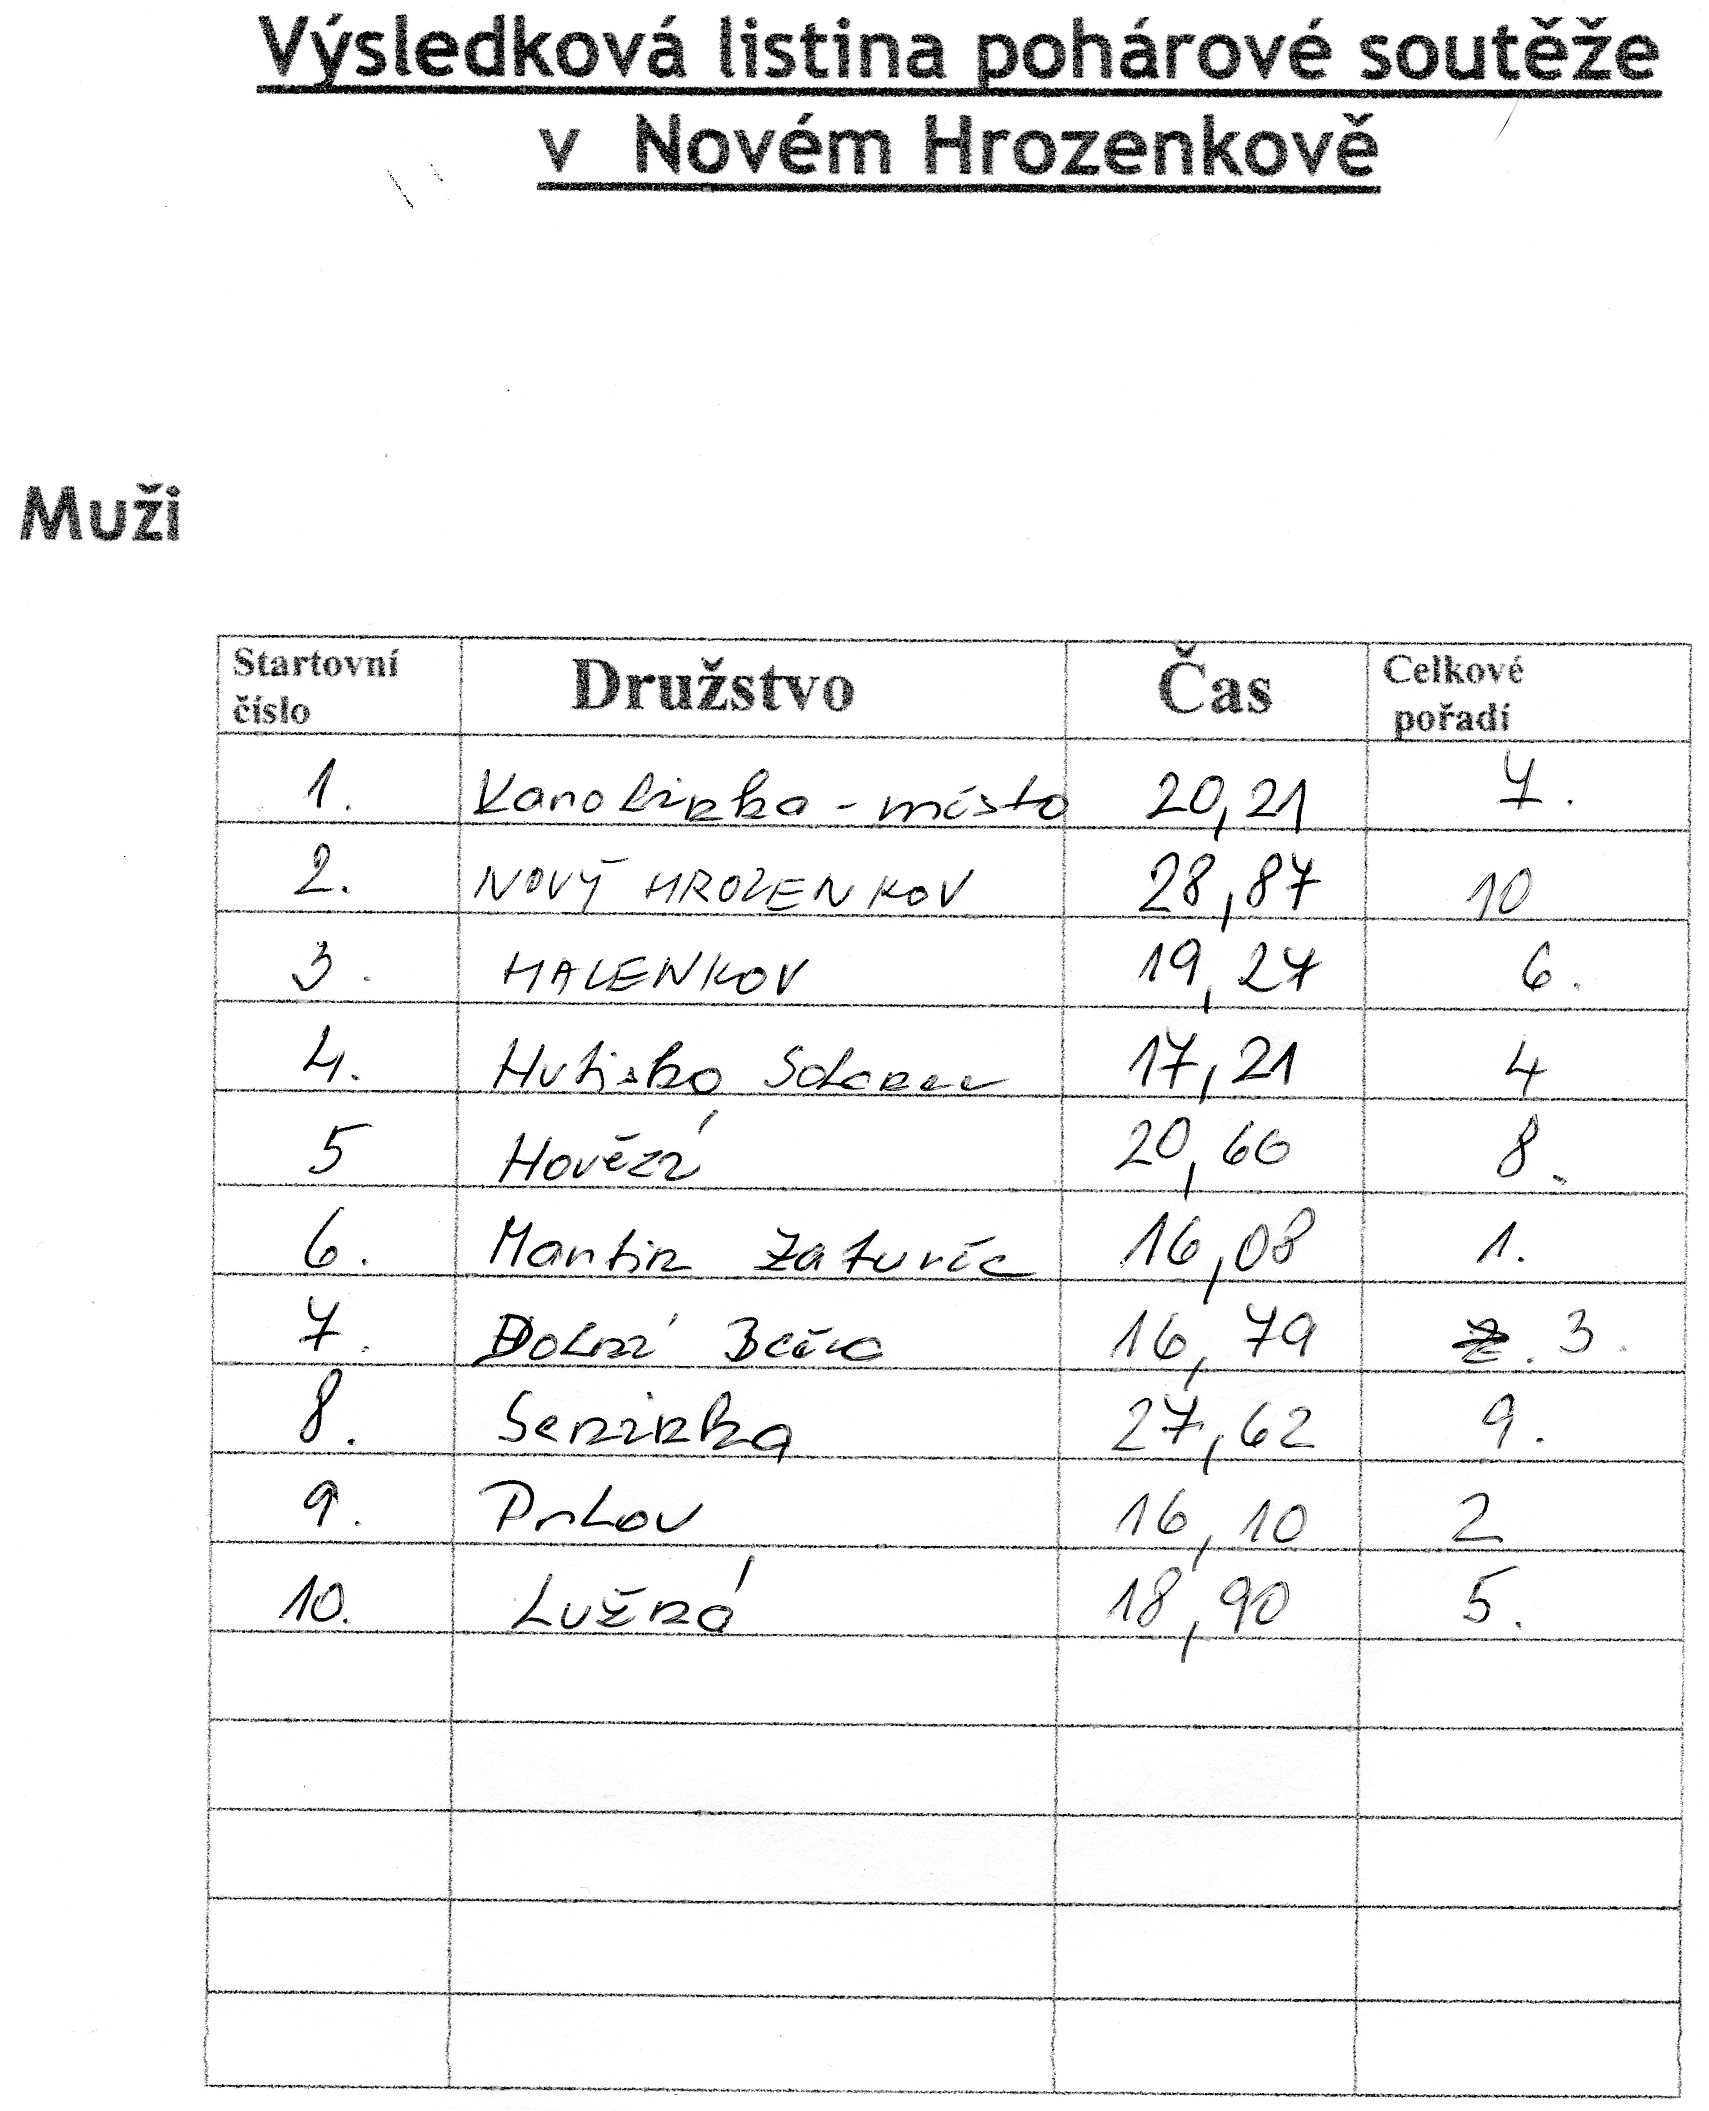 Výsledková listina pohárové soutěže
v Novém Hrozenkově
Muži
Startovní číslo Družstvo Čas Celkové pořadí
1. Karolinka - město 20,21 7.
2. NOVÝ HROZENKOV 28,87 10
3. HALENKOV 19,27 6.
4. Hutisko Solanec 17,21 4
5 Hovězí 20,60 8.
6. Martin Záturčie 16,08 1.
7. Dolní Bečva 16,79 3.
8. Seninka 27,62 9.
9. Prlov 16,10 2
10. Lužná 18,90 5.